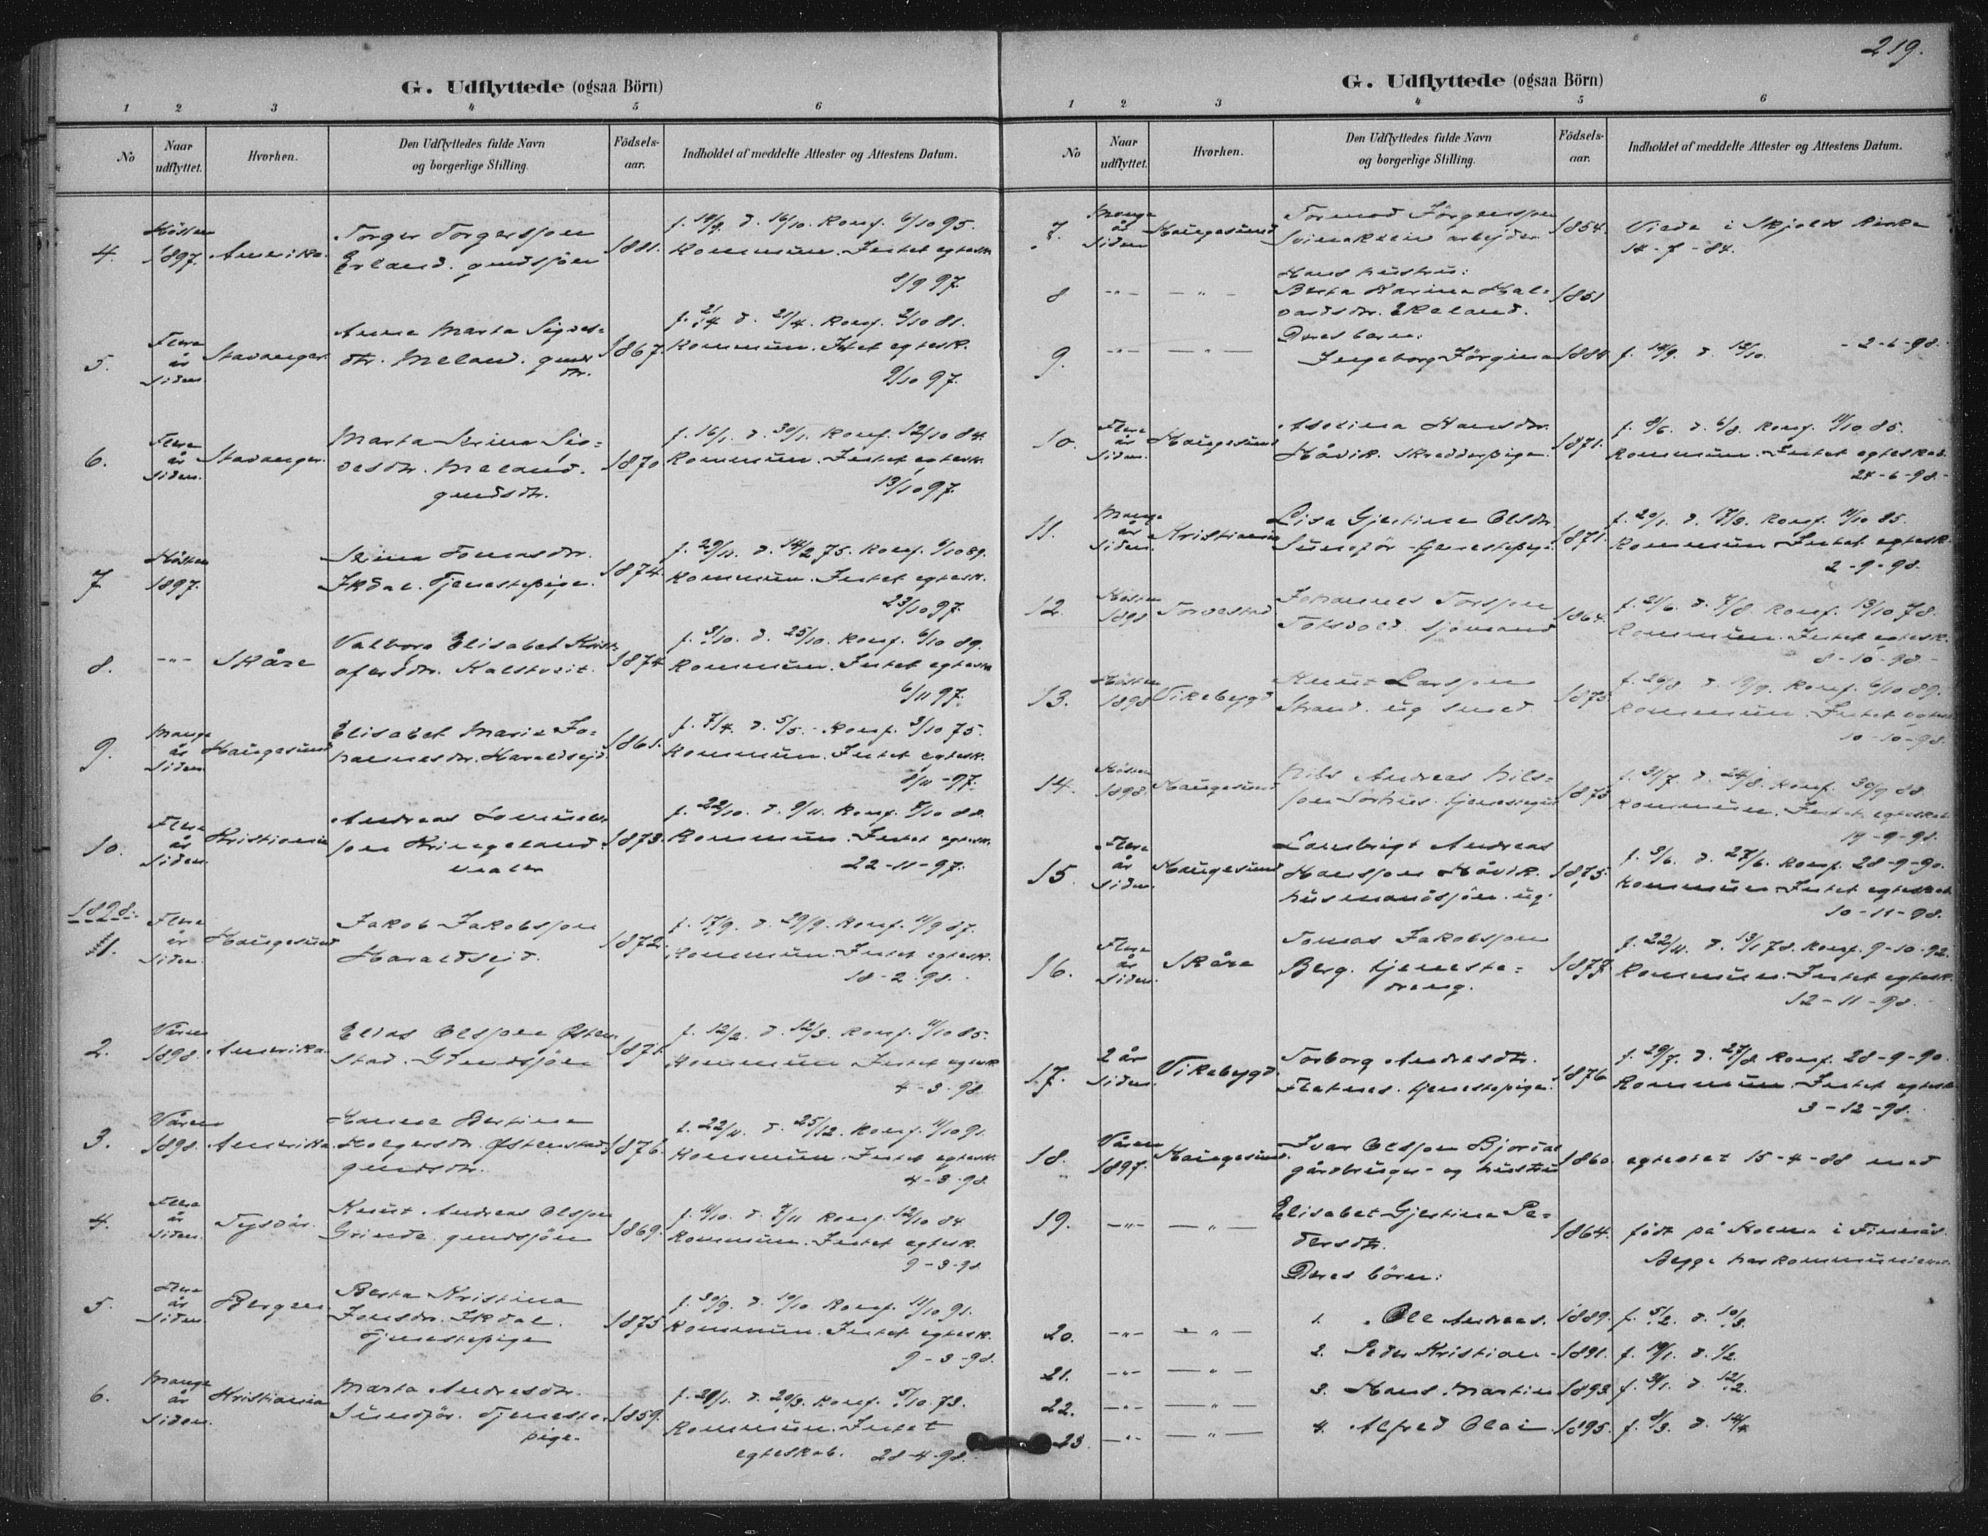 219.
G. Udflyttede (ogsaa Börn)
1 2 3 4 5 6
No
Naar udflyttet.
Hvorhen.
Den Udflyttedes fulde Navn og borgerlige Stilling.
Födsels-aar.
Indholdet af meddelte Attester og Attestens Datum.
4. Hösten 1897. Amerika. Torger Torgersjøn
Erland. gmdsjøn 1881. f. 19/9 d. 16/10. Konf. 6/10 95.
Kommun. Intet egtesk.
8/9 97.
5. Flere år siden Stavanger. Anna Marta Sigves-
dtr. Meland. gmds
dtr. 1867. f. 2/4 d. 21/4. Konf. 2/10 81.
Kommun. Intet egtesk.
9/10 97.
6. Flere år siden. Stavanger. Marta Serina Sig-
vesdtr. Meland.
gmdsdtr. 1870 f. 16/1. d. 30/1. Konf. 12/10 84.
Kommun. Intet egtesk.
13/10 97.
7 Hösten 1897. Stina Tomasdtr.
Ikdal. Tjenestepige. 1874. f. 29/11. d. 14/2 75. Konf. 6/10 89.
Kommun. Intet egtesk.
23/10 97.
8. -"- Skåre Valborg Elisabet Krist-
ofersdtr. Kalstveit. 1874 f. 3/10. d. 25/10. Konf. 6/10 89.
Kommun. Intet egtesk
6/11 97.
9. Mange år siden Haugesund Elisabet Marie Jo-
hannesdtr. Haraldsejd. 1861. f. 7/4. d. 5/5. Konf. 3/10 75.
Kommun. Intet egtesk.
8/11 -97.
10. Flere år siden Kristiania Andreas Samuels-
søn Kringeland.
maler 1873. f. 22/10. d. 9/11. Konf. 7/10 88.
Kommun. Intet egtesk.
22-11-97.
1898.
1. Flere år siden. Haugesund Jakob Jakobsjøn
Haraldsejd. 1872. f. 17/9. d. 29/9. Konf. 11/9 87.
Kommun. Intet egtesk.
18-2-98.
2. Våren 1898. Amerika. Elias Olsjøn Østen-
stad. Gmdsjøn 1871. f. 12/2. d. 12/3. Konf. 11/10 85.
Kommun Intet egtesk
4-3-98
3. Våren 1898. Amerika Hanna Bertine
Holgersdtr. Østenstad
gmdsdtr. 1876. f. 22/11. d. 25/12. Konf. 11/10 91.
Kommun. Intet egtesk.
4-3-98.
4. Flere år siden. Tysvär. Knut Andreas Olsjøn
Grinde. gmdsjøn 1869. f. 11/10. d. 7/11 Konf. 12/10 84.
Kommun. Intet egtesk.
9-3-98
5. Flere år siden Bergen Berta Kristina
Jonsdtr. Ikdal.
Tjenestepige 1875 f. 30/9. d. 10/10. Konf. 11/10 91.
Kommun. Intet egtesk.
9-3-98.
6. Mange år siden. Kristiania Marta Andresdtr.
Sundför. Tjeneste-
pige. 1859. f. 29/1. d. 20/3. Konf. 5/10 73.
Kommun. Intet
egteskab. 28-4-98.
G. Udflyttede (ogsaa Börn)
1 2 3 4 5 6
No
Naar udflyttet.
Hvorhen.
Den Udflyttedes fulde Navn og borgerlige Stilling.
Födsels-aar.
Indholdet af meddelte Attester og Attestens Datum.
7. Mange år siden Haugesund Tormod Jörgensjøn
arbejder 1854. Viede i Skjolds Kirke
14-7-84.
8 -"- -"- Hans hustru:
Berta Karina Hal-
vardsdtr. Ekeland. 1851
9. -"- -"- Deres barn:
Ingeborg Jörgina 1884 f. 14/9. d. 12/10. -2-6-98.
10. Flere år siden. Haugesund Asseline Hansdtr.
Håvik. skredderpige. 1871. f. 9/6. d. 6/8. Konf. 11/10 85.
Kommun. Intet egteskab.
24-6-98.
11. Mange år siden. Kristiania Lisa Gjertine Olsdtr.
Sundför Tjenestepige 1871. f. 20/1. d. 17/3. Konf. 11/10 85.
Kommun. Intet egtesk.
2-9-98.
12. Hösten 1898 Torvestad Johannes Torsjøn
sjömand 1864. f. 21/6. d. 7/8 Konf. 13/10 78.
Kommun. Intet egtesk.
8-10-98.
13. Hösten 1898 Vikebygd Knut Larsjøn
Strand. ug smed. 1875 f. 26/8 d. 19/9. Konf. 6/10 89.
Kommun. Intet egtesk
10-10-98.
14. Hösten 1898. Haugesund Nils Andreas Nils-
søn 1873 f. 31/7. d. 24/8. Konf. 30/9 88.
Kommun. Intet egteskab
19-9-98.
15. Flere år siden Haugesund Lambrigt Andreas
Hansjøn Håvik.
husmandsjøn. ug. 1875. f. 3/6. d. 27/6. Konf. 28-9-90.
Kommun Intet egteskab
10-11-98.
16. Flere år siden. Skåre Tomas Jakobsjøn
Berg. tjeneste-
dreng. 1877. f. 22/11. d. 13/1 78. Konf. 9-10-92.
Kommun. Intet egtesk.
12-11-98.
17. 2 år siden. Vikebygd. Torborg Andresdtr.
Flatnes. tjenestepige. 1876 f. 29/7. d. 27/8. Konf. 28-9-90.
Kommun. Intet egtesk
3-12-98.
18. Våren 1897. Haugesund. Ivar Olsjøn Bjordal
gårdbruger- og hustru 1860. egteviet 15-4-88 med
19. -"- -"- Elisabet Gjertina Pe-
dersdtr. 1864. födt på Holma i Finnås.
Begge har kommuniceret.
Deres börn:
20. -"- -"- 1. Ole Andreas. 1889. f. 5/2. d. 10/3.
21. -"- -"- 2. Peder Kristian 1891. f. 19/1. d. 1/2.
22. -"- -"- 3. Hans Martin 1893. f. 3/1. d. 12/2.
23. -"- -"- 4. Alfred Olai 1895. f. 8/3. d. 14/4.